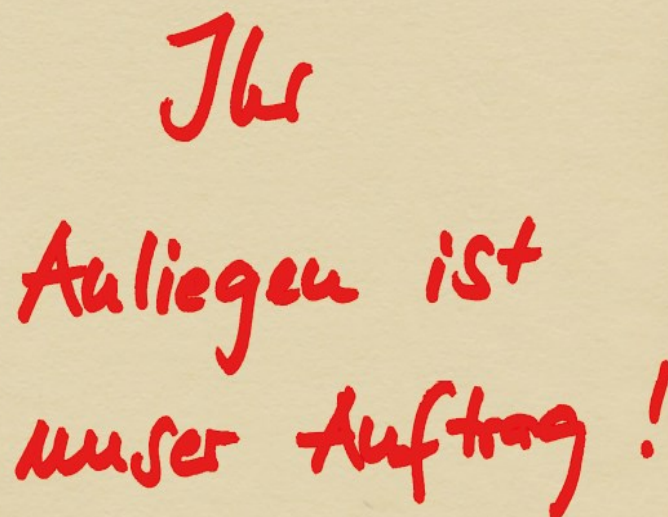 Ihr
Anliegen ist
unser Auftrag!